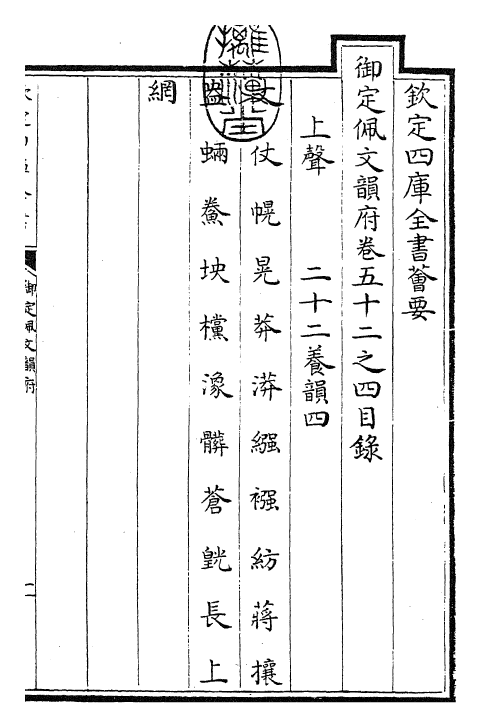 欽定四庫全書薈要
御定佩文韻府卷五十二之四目錄
上聲　二十二養韻四
丈仗幌晃莽漭繦襁紡蔣攘
盎蛃鮝坱欓潒髒蒼皝長上
網
御定佩文韻府